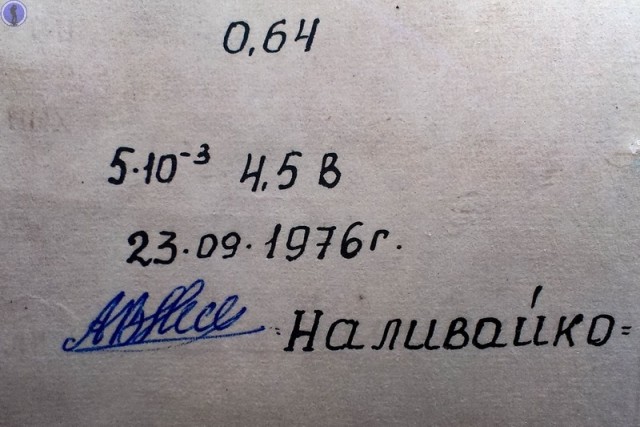 0,64
5·10⁻³ 4,5 В
23.09.1976г.
Наливайко